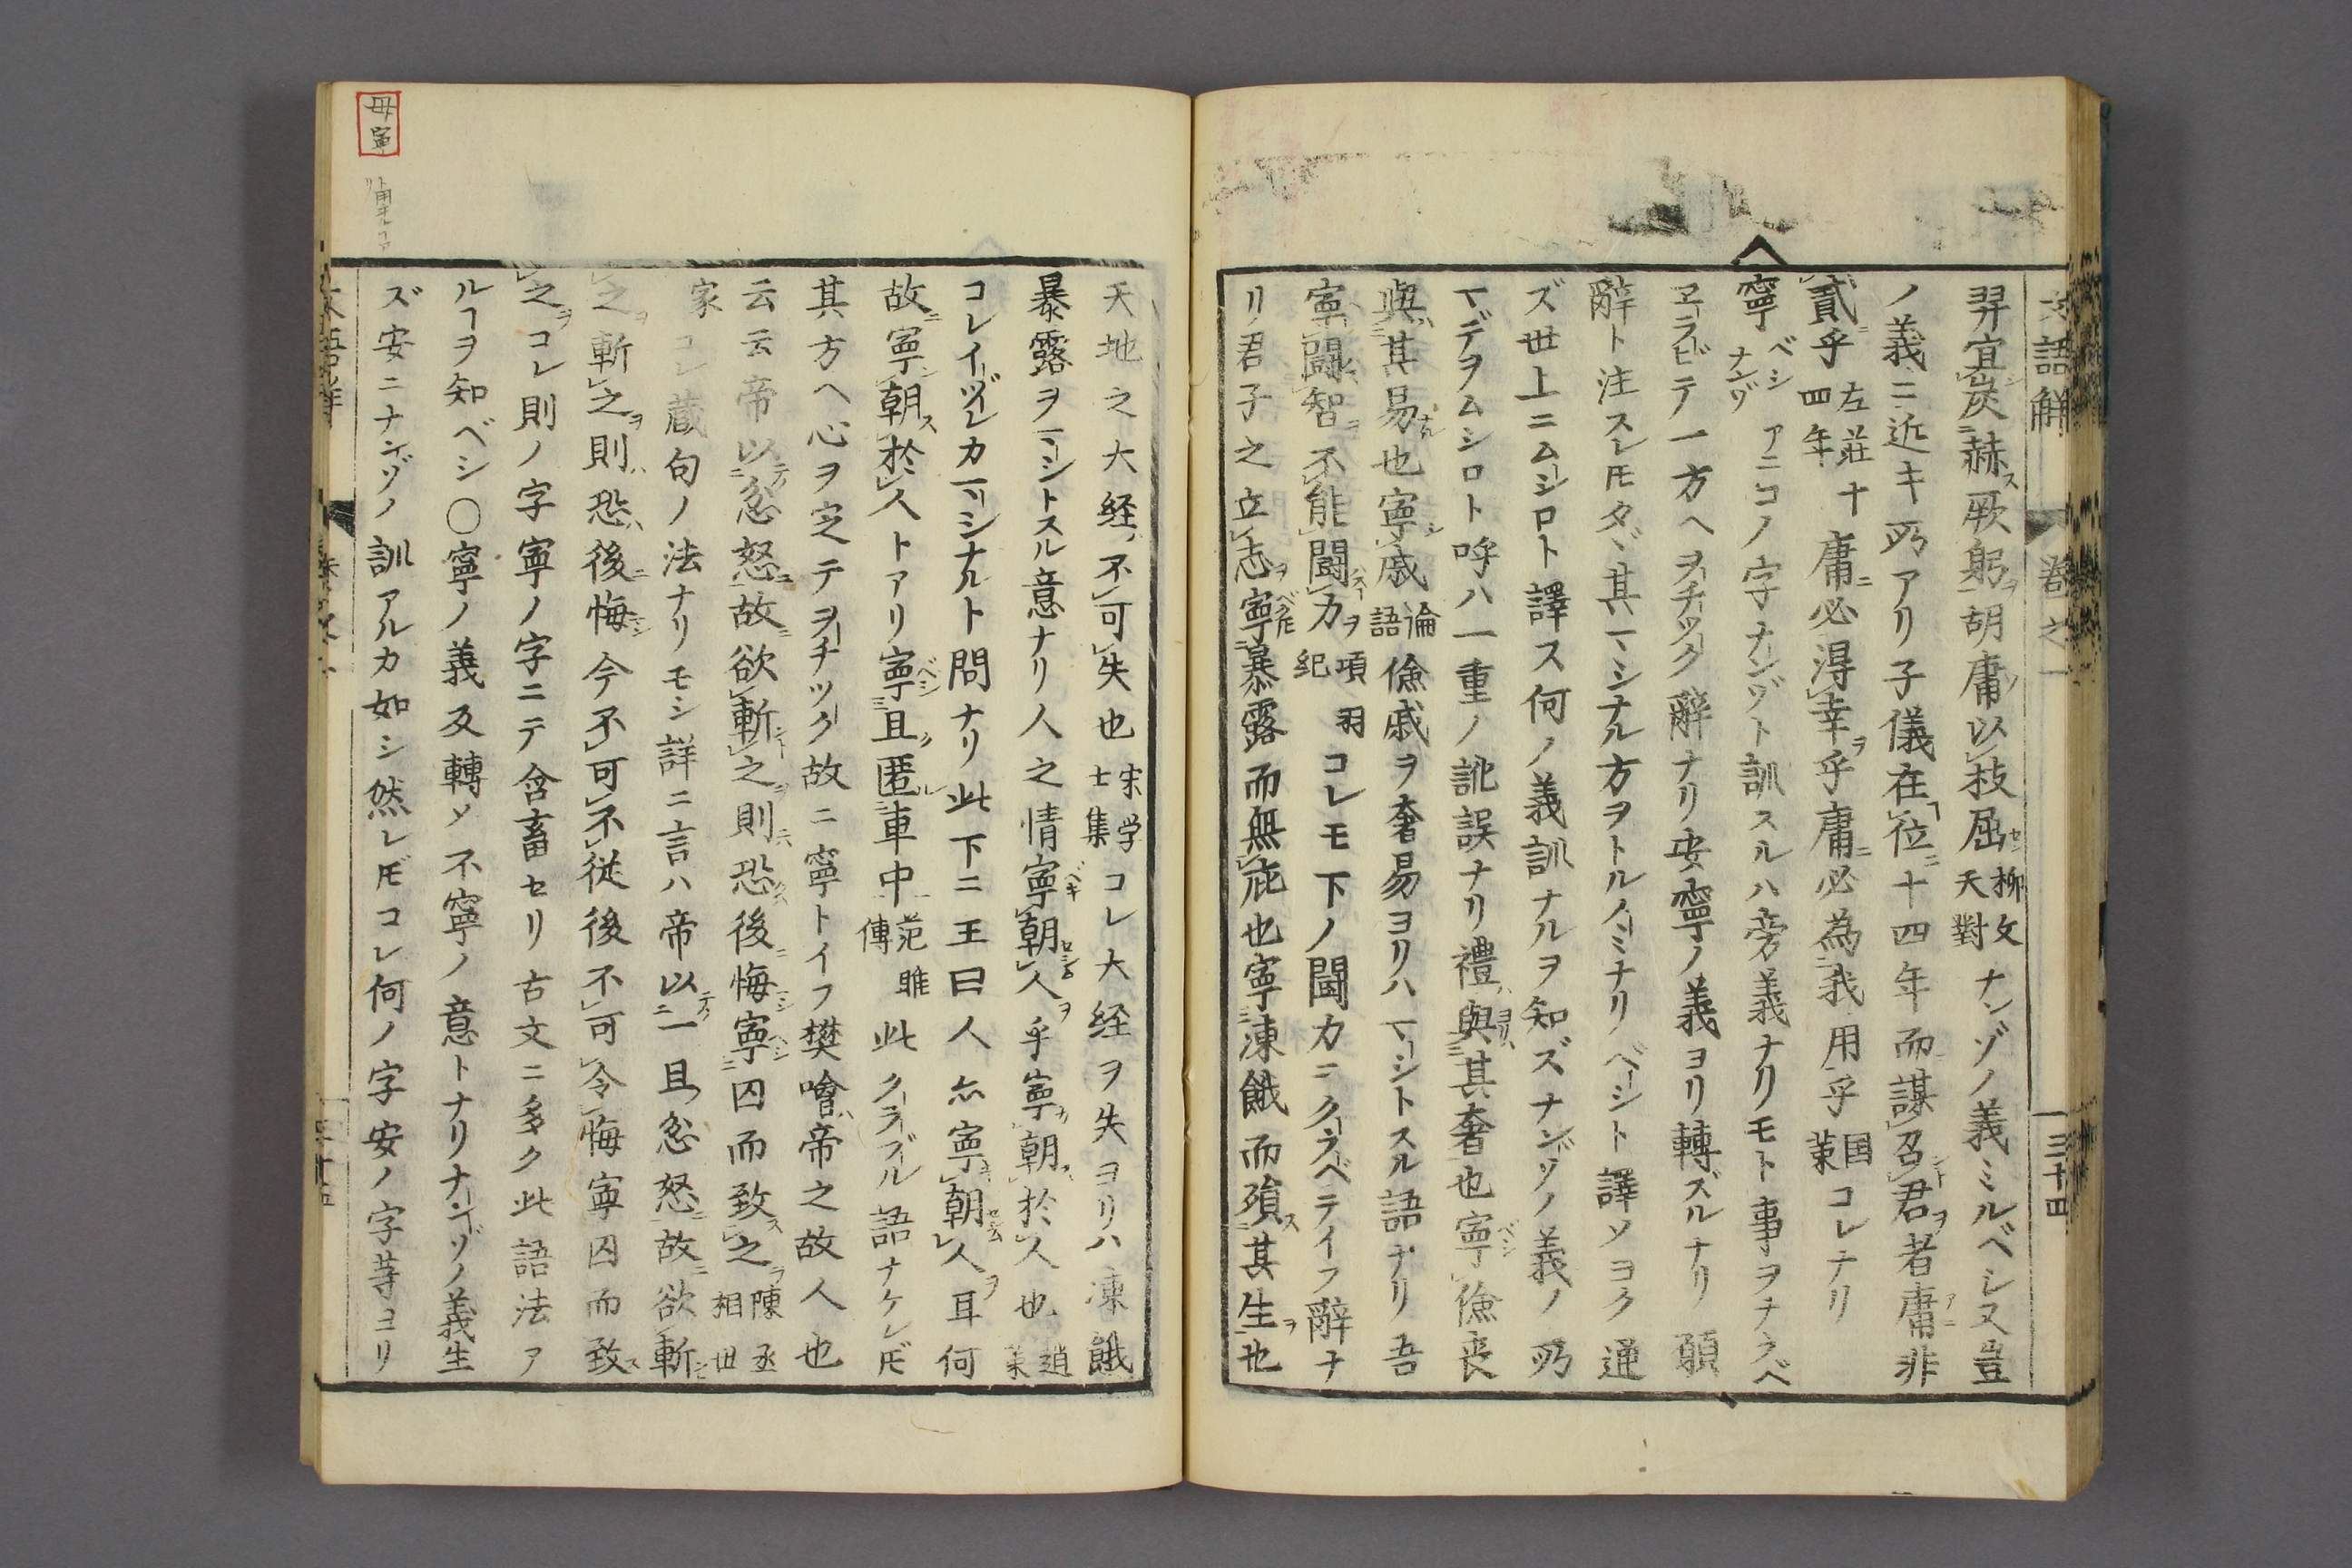 文語解 卷之一 三十四
羿宜炭赫厥躬胡庸以枝屈柳文天對ナンゾノ義ミルベシ又豈
ノ義ニ近キ所アリ子儀在位十四年而謀召君者庸非
貳乎左莊十四年庸必得幸乎庸必為我用乎国策コレナリ
寧ベシナンゾアニコノ字ナンゾト訓スルハ旁義ナリモト事ヲナラベ
ヱラビテ一方ヘヲチツク辭ナリ安寧ノ義ヨリ轉ズルナリ願
辭ト注スレ𪜈タヾ其マシナル方ヲトルノミナリベシト譯ソヨク通
ズ世上ニムシロト譯ス何ノ義訓ナルヲ知ズナンゾノ義ノ所
マデヲムシロト呼ハ一重ノ訛誤ナリ禮與其奢也寧儉喪
與其易也寧戚論語儉戚ヲ奢易ヨリハマシトスル語ナリ吾
寧闘智不能闘力項羽紀コレモ下ノ闘力ニクラベテイフ辭ナ
リ君子之立志寧暴露而無庇也寧凍餓而殞其生也
天地之大経不可失也宋学士集コレ大経ヲ失ヨリハ凍餓
暴露ヲマシトスル意ナリ人之情寧朝人乎寧朝於人也趙策
コレイヅレカマシナルト問ナリ此下ニ王曰人亦寧朝人耳何
故寧朝於人トアリ寧且匿車中范雎傳此クラブル語ナケレ𪜈
其方ヘ心ヲ定テヲチツク故ニ寧トイフ樊噲帝之故人也
云云帝以忿怒故欲斬之則恐後悔寧囚而致之陳丞相世
家コレ蔵句ノ法ナリモシ詳ニ言ハ帝以一旦忿怒故欲斬
之斬之則恐後悔今不可不従後不可令悔寧囚而致
之コレ則ノ字寧ノ字ニテ含畜セリ古文ニ多ク此語法ア
ルヿヲ知ベシ○寧ノ義又轉〆不寧ノ意トナリナンゾノ義生
ズ安ニナンゾノ訓アルカ如シ然レ𪜈コレ何ノ字安ノ字等ヨリ
毋寧